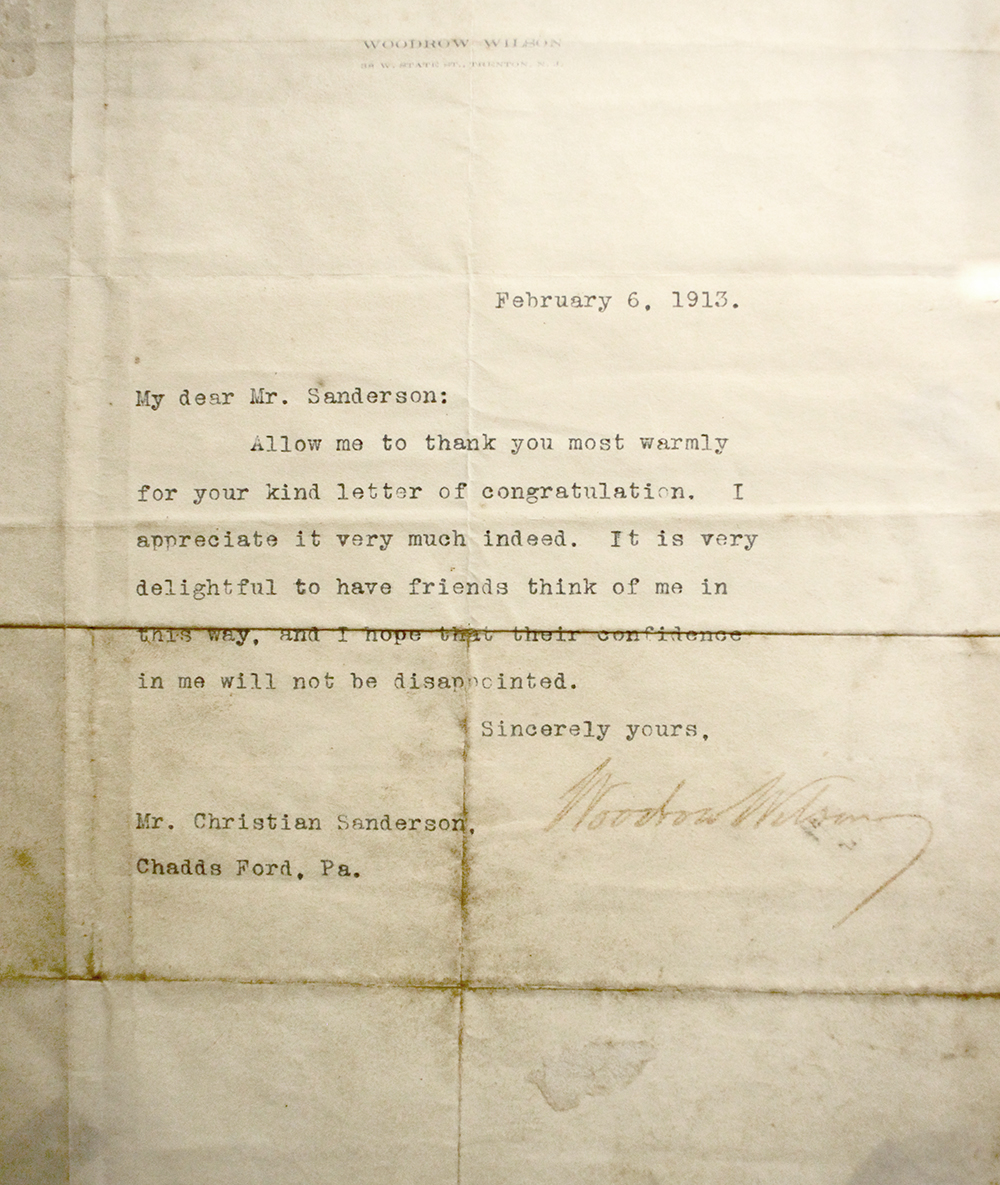 WOODROW WILSON
W. STATE ST., TRENTON, N. J.
February 6, 1913.
My dear Mr. Sanderson:
Allow me to thank you most warmly
for your kind letter of congratulation. I
appreciate it very much indeed. It is very
delightful to have friends think of me in
this way, and I hope that their confidence
in me will not be disappointed.
Sincerely yours,
Woodrow Wilson
Mr. Christian Sanderson,
Chadds Ford, Pa.